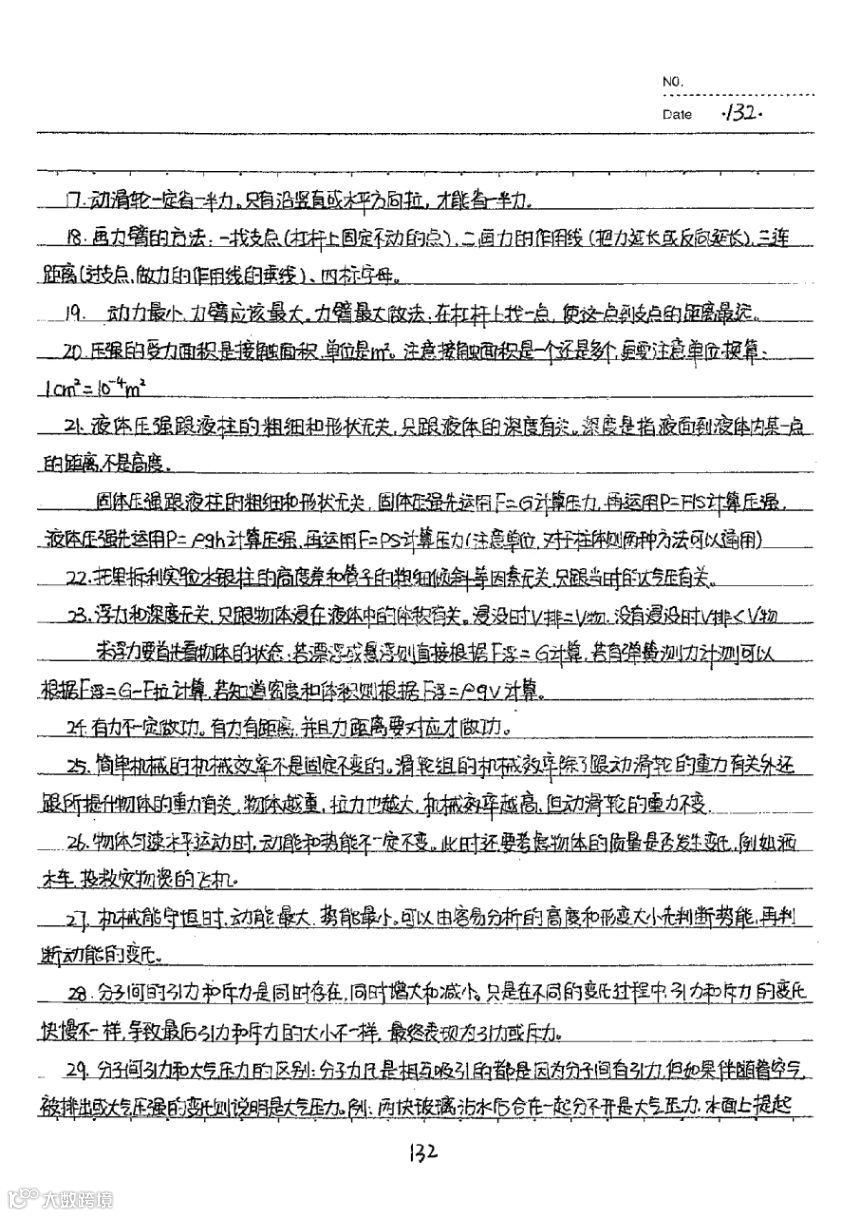 NO.
Date ·132·
17.动滑轮一定省一半力。只有沿竖直或水平方向拉,才能省一半力.
18.画力臂的方法:一找支点(杠杆上固定不动的点),二画力的作用线(把力延长或反向延长),三连
距离(过支点,做力的作用线的垂线)、四标字母。
19. 动力最小,力臂应该最大。力臂最大做法:在杠杆上找一点,使这一点到支点的距离最远。
20.压强的受力面积是接触面积,单位是m²。注意接触面积是一个还是多个,更要注意单位换算:
1cm²=10⁻⁴m²
21.液体压强跟液柱的粗细和形状无关,只跟液体的深度有关。深度是指液面到液体内某一点
的距离,不是高度.
固体压强跟液柱的粗细和形状无关,固体压强先运用F=G计算压力,再运用P=F/S计算压强,
液体压强先运用P=ρgh计算压强,再运用F=PS计算压力(注意单位,对于柱体则两种方法可以通用)
22.托里拆利实验水银柱的高度差和管子的粗细倾斜等因素无关,只跟当时的大气压有关。
23.浮力和深度无关,只跟物体浸在液体中的体积有关。浸没时V排=V物,没有浸没时V排<V物
求浮力要首先看物体的状态:若漂浮或悬浮则直接根据F浮=G计算,若有弹簧测力计测可以
根据F浮=G-F拉计算,若知道密度和体积则根据F浮=ρgv计算。
24.有力不一定做功。有力有距离,并且力距离要对应才做功。
25.简单机械的机械效率不是固定不变的。滑轮组的机械效率除了跟动滑轮的重力有关外还
跟所提升物体的重力有关,物体越重,拉力也越大,机械效率越高,但动滑轮的重力不变.
26.物体匀速水平运动时,动能和势能不一定不变。此时还要考虑物体的质量是否发生变化,例如洒
水车,投救灾物资的飞机.
27.机械能守恒时,动能最大,势能最小。可以由容易分析的高度和形变大小先判断势能,再判
断动能的变化。
28.分子间的引力和斥力是同时存在,同时增大和减小。只是在不同的变化过程中,引力和斥力的变化
快慢不一样,导致最后引力和斥力的大小不一样,最终表现为引力或斥力。
29.分子间引力和大气压力的区别:分子力凡是相互吸引的都是因为分子间有引力,但如果伴随着空气
被排出或大气压强的变化则说明是大气压力。例:两块玻璃沾水后合在一起分不开是大气压力,水面上提起
132
大数跨境